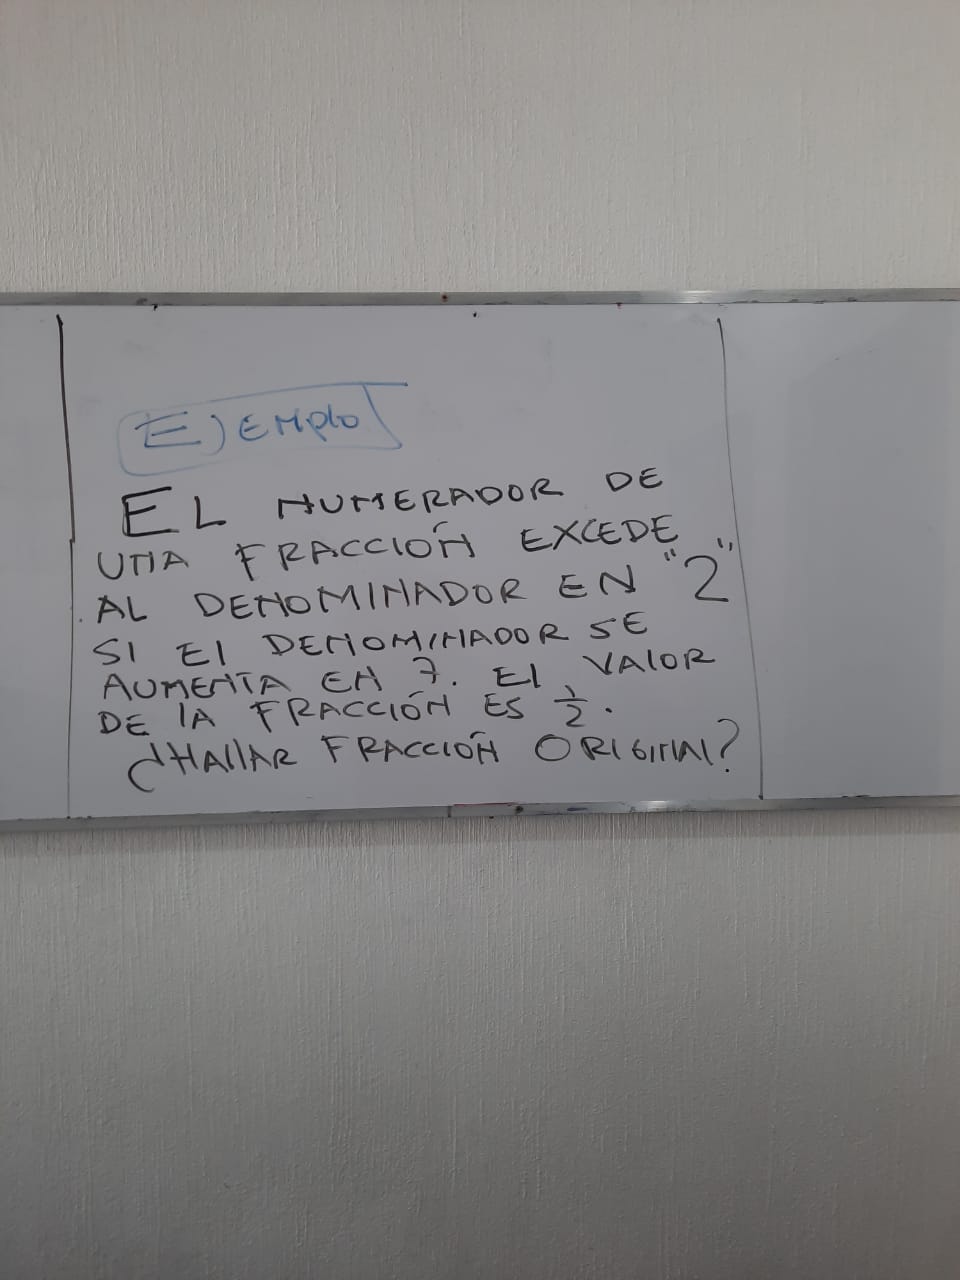 Ejemplo
EL NUMERADOR DE
UNA FRACCIÓN EXCEDE
AL DENOMINADOR EN "2"
SI El DENOMINADOR SE
AUMENTA EN 7. El VALOR
DE lA FRACCIÓN ES 1/2.
¿HAllAR FRACCIÓN ORIGINAl?